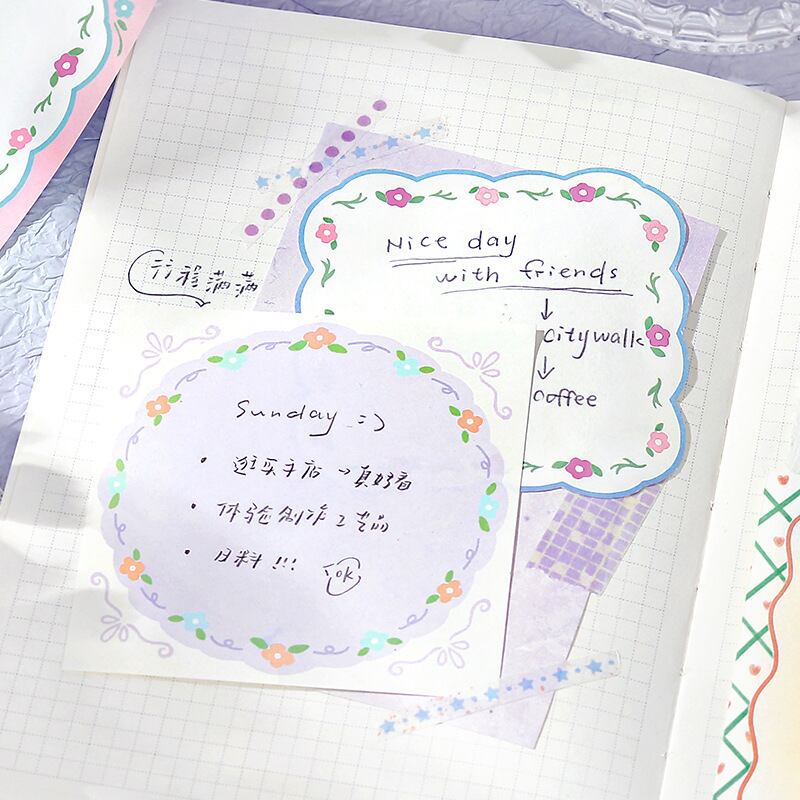 Nice day
with friends
↓
citywalk
↓
coffee
行程满满
Sunday =:)
• 逛买手店 → 真好看
• 体验创作工艺品
• 日料!!! OK